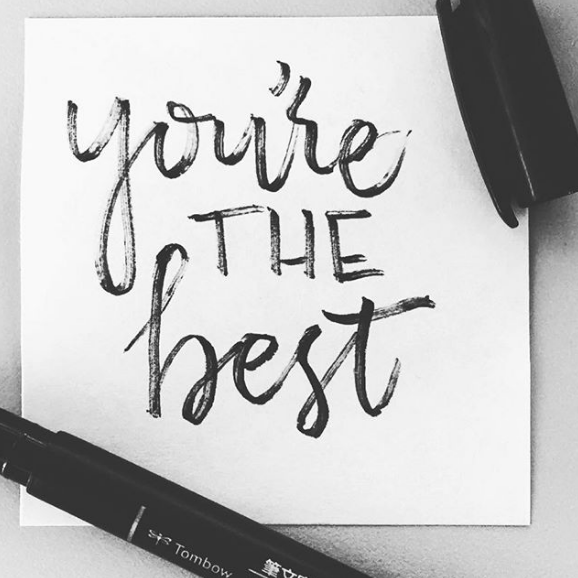 you're
THE
best
Tombow 筆文